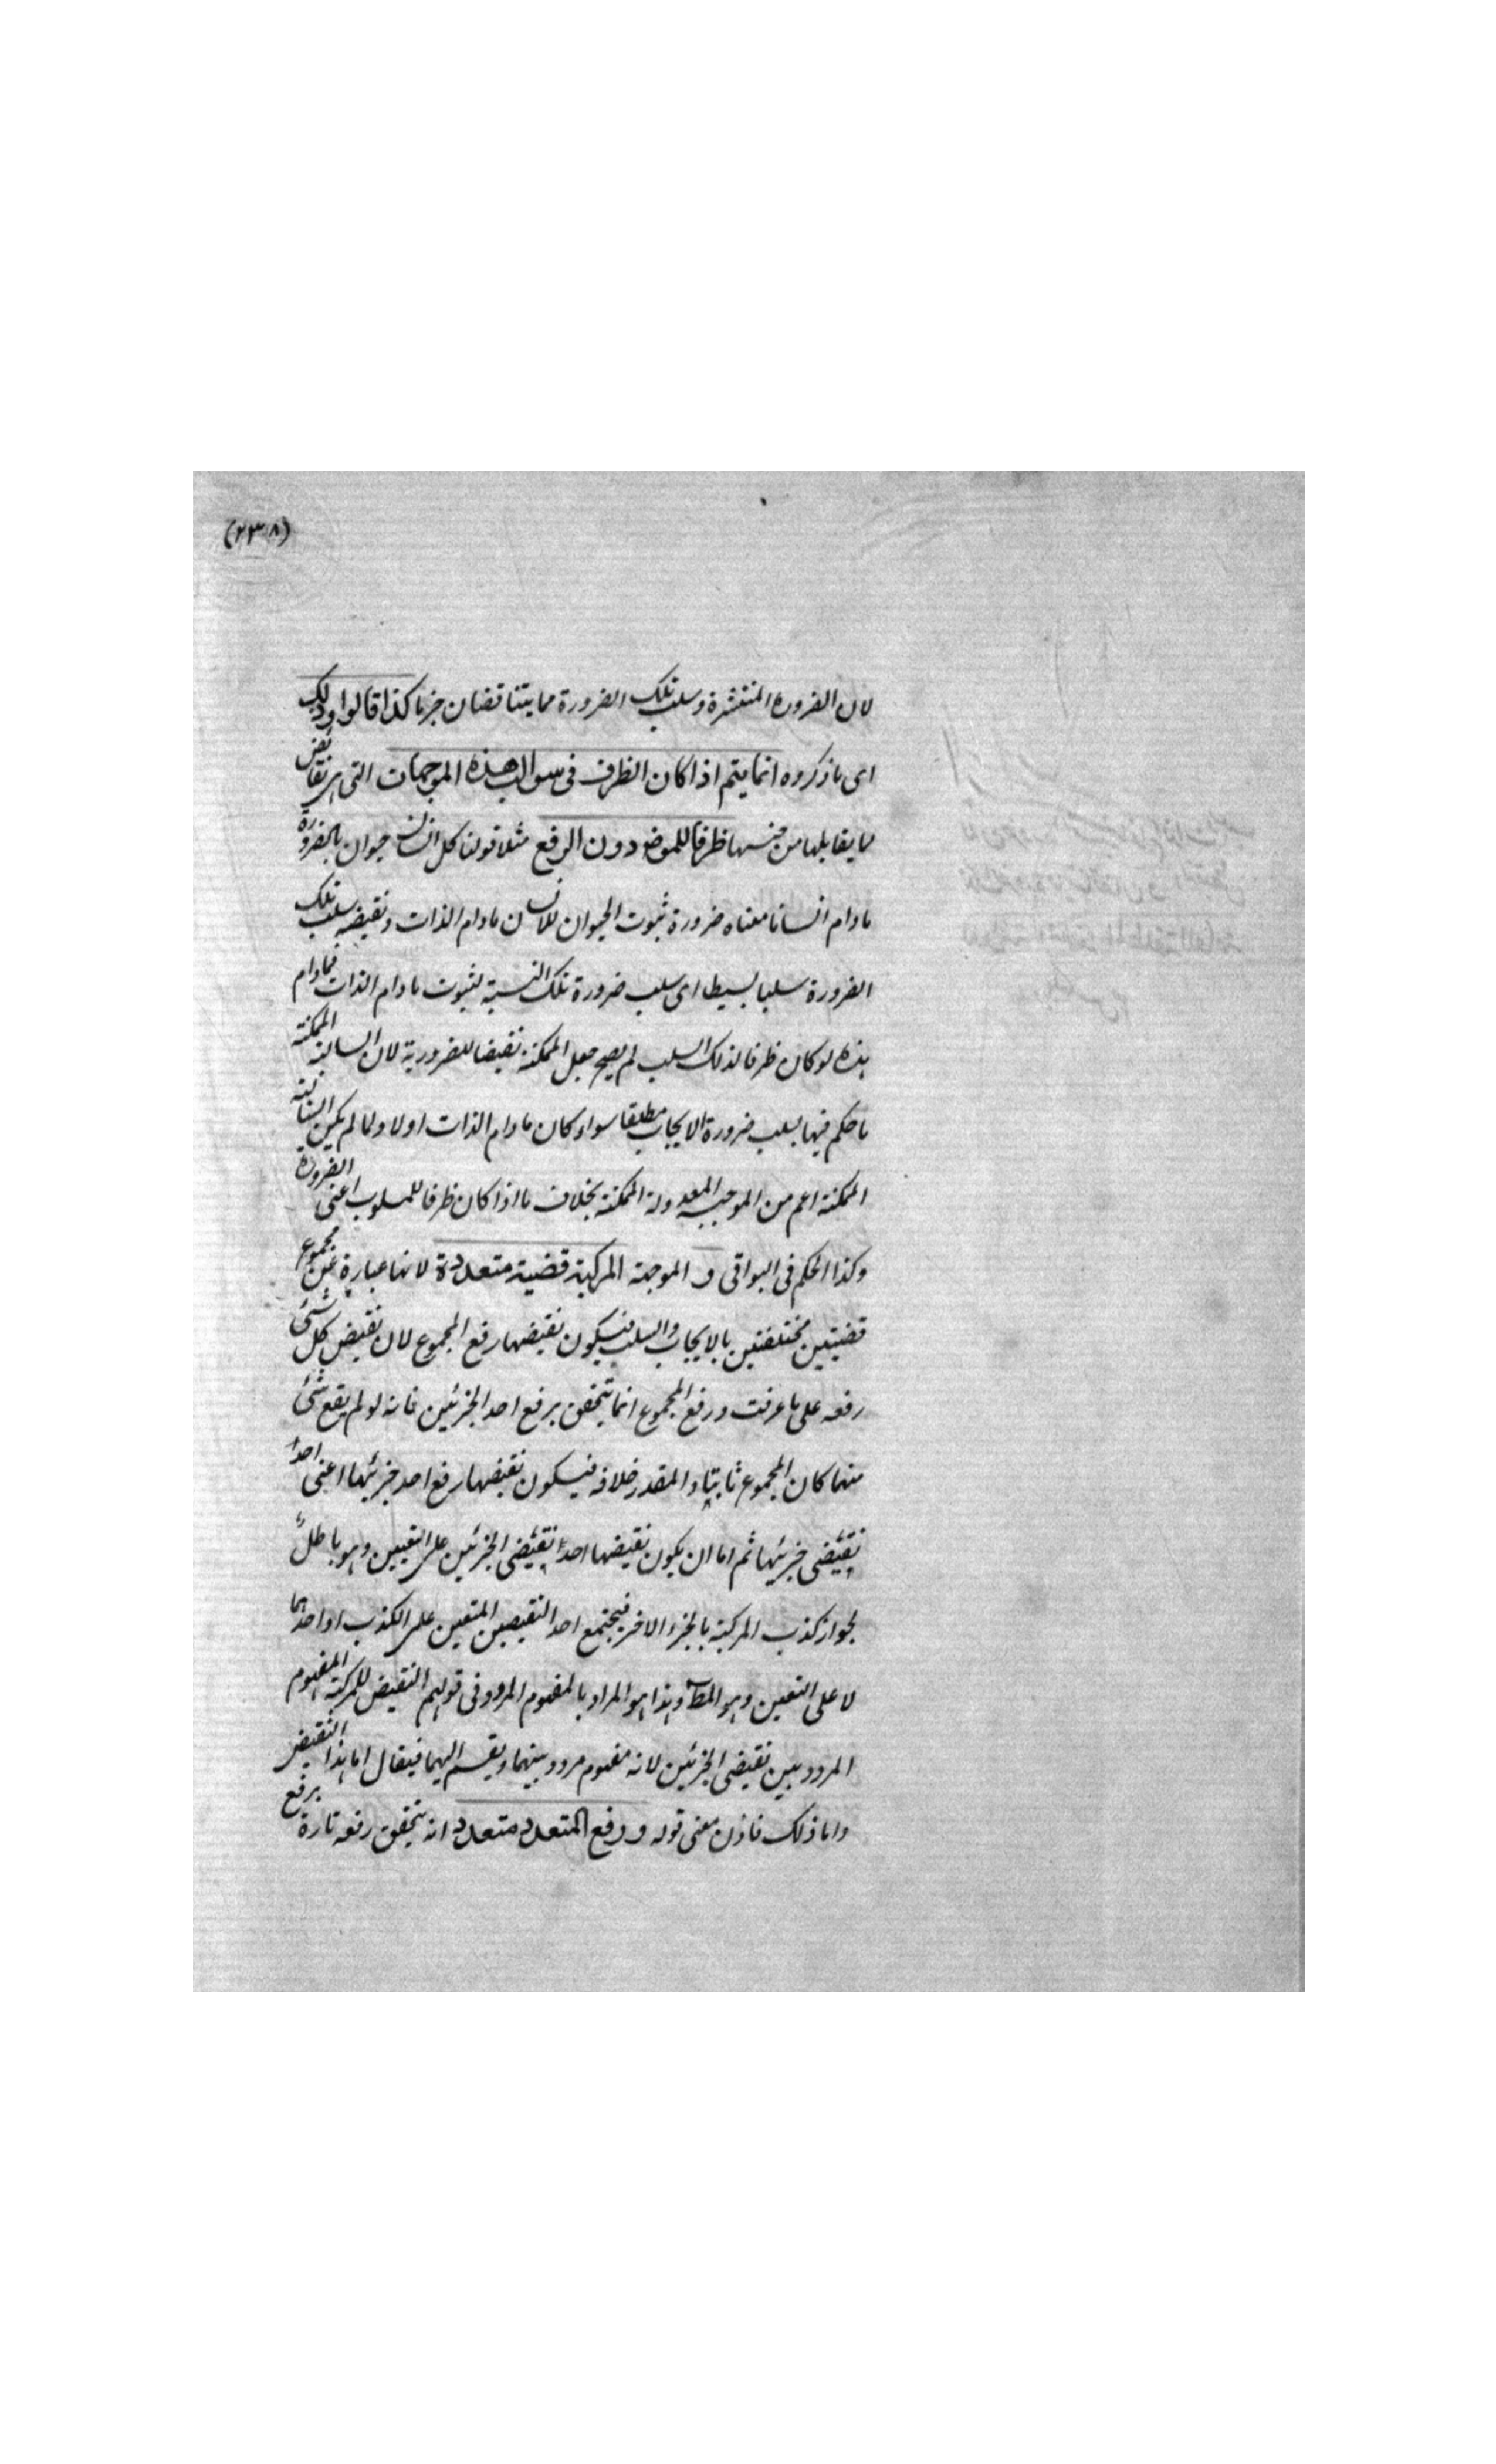 (٢٣٨)
لان الضرورة المنتشرة وسلب تلك الضرورة مما يتناقضان جزما كذا قالوا وذلك
اى ما ذكروه انما يتم اذا كان الظرف فى سوالب هذه الموجهات التى هى نقائض
لما يقابلها من جنسها ظرفا للمرفوع دون الرفع مثلا قولنا كل انسان حيوان بالضرورة
ما دام انسانا معناه ضرورة ثبوت الحيوان للانسان ما دام الذات ونقيضه سلب تلك
الضرورة سلبا بسيطا اى سلب ضرورة تلك النسبة لثبوت ما دام الذات فمادام
هذه لو كان ظرفا لذلك السلب لم يصح جعل الممكنة نقيضا للضرورية لان السالبة الممكنة
ما حكم فيها بسلب ضرورة الايجاب مطلقا سواء كان ما دام الذات اولا ولما لم يكن السالبة
الممكنة اعم من الموجبة المعدولة الممكنة بخلاف ما اذا كان ظرفا للمسلوب اعنى الضرورة
وكذا الحكم فى البواقى و الموجهة المركبة قضية متعددة لانها عبارة عن مجموع
قضيتين مختلفتين بالايجاب والسلب فيكون نقيضها رفع المجموع لان نقيض كل شئ
رفعه على ما عرفت ورفع المجموع انما يتحقق برفع احد الجزئين فانه لو لم يقع شئ
منهما كان المجموع ثابتا والمقدر خلافه فيكون نقيضها رفع احد جزئيها اعنى احد
نقيضى جزئيها ثم اما ان يكون نقيضها احد نقيضى الجزئين على التعيين وهو باطل
لجواز كذب المركبة بالجزء الاخر فيجتمع احد النقيضين المتعين على الكذب او احدهما
لا على التعين وهو المط وهذا هو المراد بالمفهوم المردد فى قولهم النقيض للمركبة المفهوم
المردد بين نقيضى الجزئين لانه مفهوم مردد بينهما ويقسم اليهما فيقال اما هذا النقيض
واما ذلك فاذن معنى قوله ورفع المتعدد متعدد انه يتحقق رفعه تارة برفع